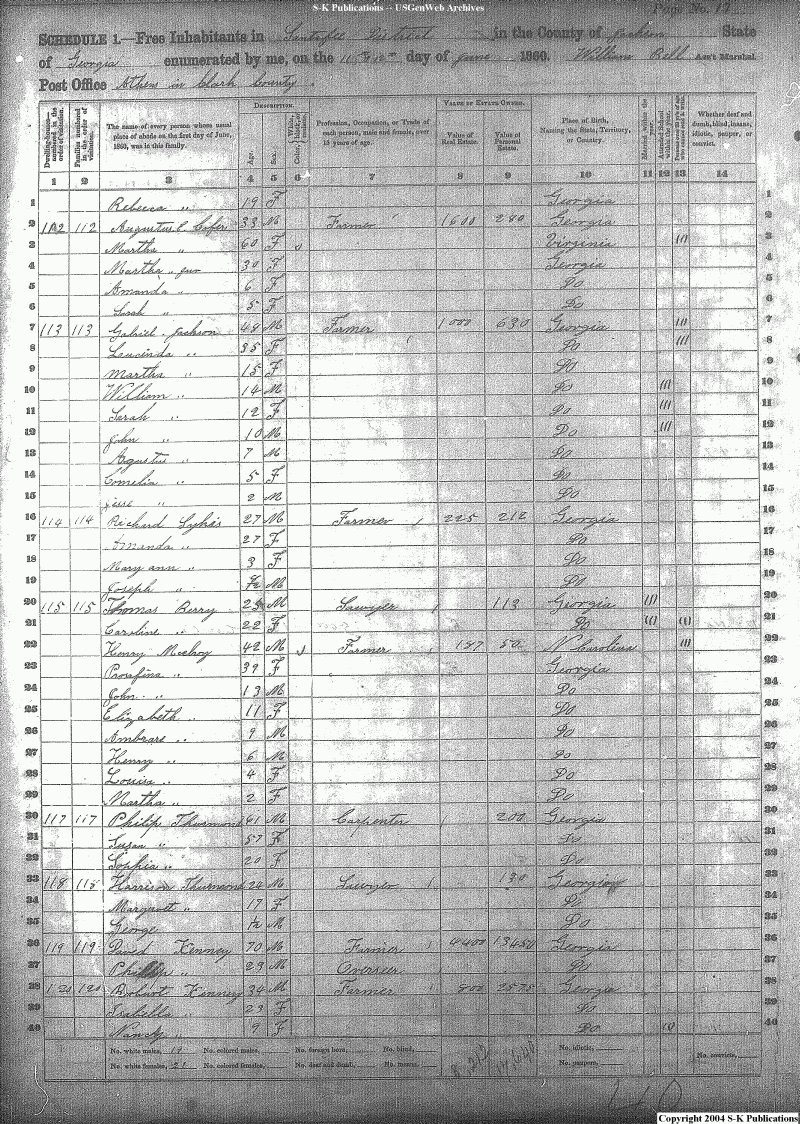 S-K Publications -- USGenWeb Archives
Page No. 17
SCHEDULE 1.—Free Inhabitants in Santafee District in the County of Jackson State
of Georgia enumerated by me, on the 11 & 12th day of June 1860. William Bell Ass't Marshal.
Post Office Athens in Clark County.
DESCRIPTION. VALUE OF ESTATE OWNED.
Dwelling-houses—numbered in the order of visitation. Families numbered in the order of visitation. The name of every person whose usual place of abode on the first day of June, 1860, was in this family. Age. Sex. Color, White, black, or mulatto. Profession, Occupation, or Trade of each person, male and female, over 15 years of age. Value of Real Estate. Value of Personal Estate. Place of Birth, Naming the State, Territory, or Country. Married within the year. Attended School within the year. Persons over 20 y'rs of age who cannot read & write. Whether deaf and dumb, blind, insane, idiotic, pauper, or convict.
1 2 3 4 5 6 7 8 9 10 11 12 13 14
1 Rebecca " 19 F Georgia 1
2 112 112 Augustus C 33 M Farmer 1600 280 Georgia 2
3 Martha " 60 F Virginia /// 3
4 Martha " jun 30 F Georgia 4
5 Amanda " 6 F Do 5
6 Sarah " 5 F Do 6
7 113 113 Gabriel Jackson 48 M Farmer 1000 630 Georgia /// 7
8 Leucinda " 35 F Do /// 8
9 Martha " 15 F Do 9
10 William " 14 M Do /// 10
11 Sarah " 12 F Do /// 11
12 John " 10 M Do /// 12
13 Augustus " 7 M Do 13
14 Cornelia " 5 F Do 14
15 Jesse " 2 M Do 15
16 114 114 Richard Sykes 27 M Farmer 225 212 Georgia 16
17 Amanda " 27 F Do 17
18 Mary ann " 3 F Do 18
19 Joseph " M Do 19
20 115 115 Thomas Berry M Sawyer 113 Georgia /// 20
21 Caroline " 22 F Do /// /// 21
22 Henry Mcelroy 42 M Farmer 187 50 N Carolina /// 22
23 Prosfina " 39 F Georgia 23
24 John " 13 M Do 24
25 Elizabeth " 11 F Do 25
26 Ambrare " 9 M Do 26
27 Henry " 6 M Do 27
28 Louisa " 4 F Do 28
29 Martha " 2 F Do 29
30 117 117 Philip Thurmond 61 M Carpenter 200 Georgia 30
31 Susan " 57 F Do 31
32 Sophia " 20 F Do 32
33 118 118 Harrison Thurmond 24 M Sawyer 130 Georgia 33
34 Margarett " 17 F Do 34
35 George 1/2 M Do 35
36 119 119 David Kenney 70 M Farmer 4400 13450 Georgia 36
37 Phillip " 29 M Overseer Do 37
38 120 120 Robert Kenney 34 M Farmer 800 2575 Georgia 38
39 Isabella " 29 F Do 39
40 Nancy " 9 F Do 40
No. white males, 19 No. colored males, No. foreign born, No. blind, No. idiotic, No. convicts,
No. white females, 21 No. colored females, No. deaf and dumb, No. insane, No. paupers,
8,212 17,640
40
Copyright 2004 S-K Publications